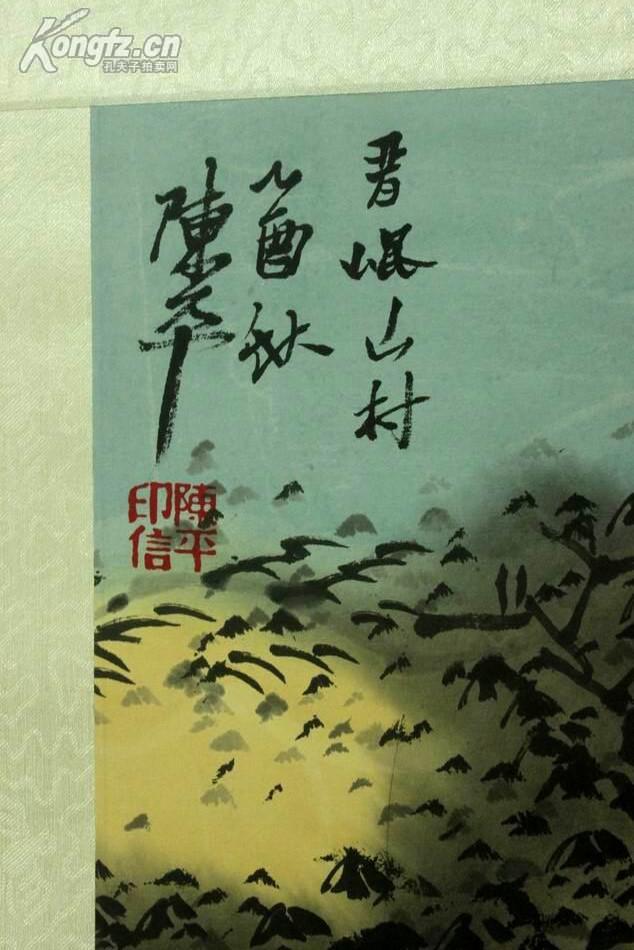 Kongfz.cn
孔夫子拍卖网
岷山村
乙酉秋
陳平
陳平
印信